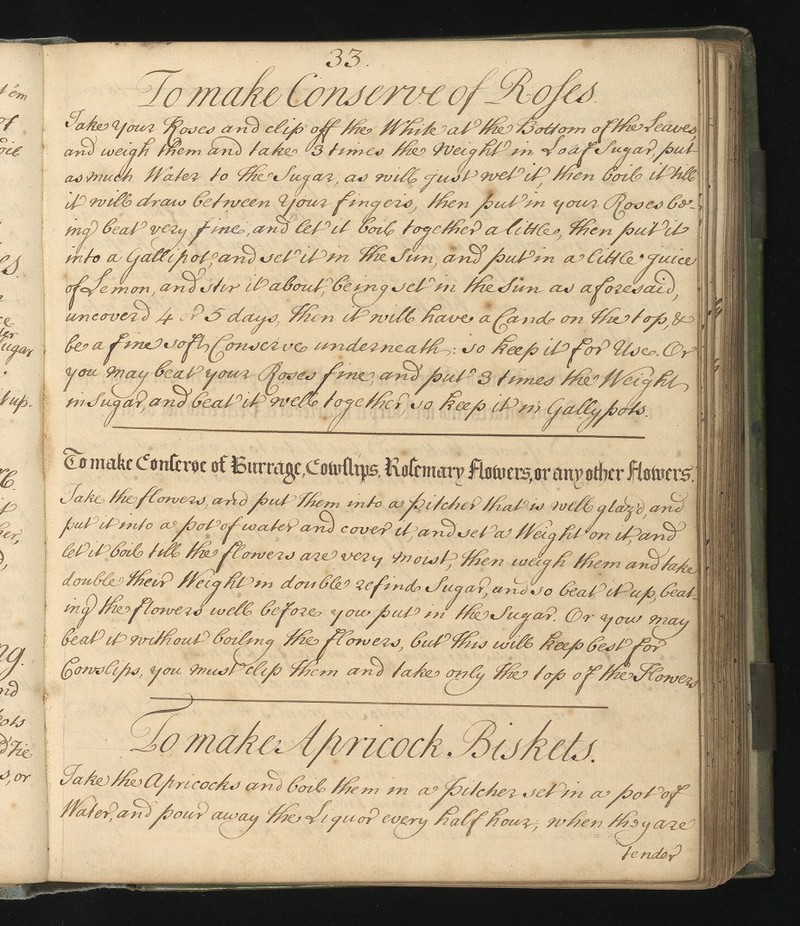 33.
To make Conserve of Roses.
Take your Roses and clip off the White at the Bottom of the Leaves,
and weigh them and take 3 times the Weight in Loaf Sugar, put
as much Water to the Sugar, as will just wet it, then boil it till
it will draw between your fingers, then put in your Roses be-
ing beat very fine, and let it boil together a little, then put it
into a Gallipot and set it in the Sun, and put in a little juice
of Lemon, and stir it about, being set in the Sun as aforesaid,
uncoverd 4 or 5 days, then it will have a Cand on the top, &
be a fine soft Conserve underneath: so keep it for Use. Or
you may beat your Roses fine, and put 3 times the Weight
in Sugar and beat it well together, so keep it in Gallypots.
To make Conserve of Burrage, Cowslips, Rosemary Flowers, or any other Flowers.
Take the flowers, and put them into a pitcher that is well glaz'd and
put it into a pot of water and cover it, and set a Weight on it, and
let it boil till the flowers are very moist, then weigh them and take
double their Weight in double refind Sugar, and so beat it up, beat-
ing the flowers well before you put in the Sugar. Or you may
beat it without boiling the flowers, but this will keep best for
Cowslips, you must clip them and take only the top of the Flowers
To make Apricock Biskets.
Take the Apricocks and boil them in a Pitcher set in a pot of
Water, and pour away the Liquor every half hour, when they are
tender